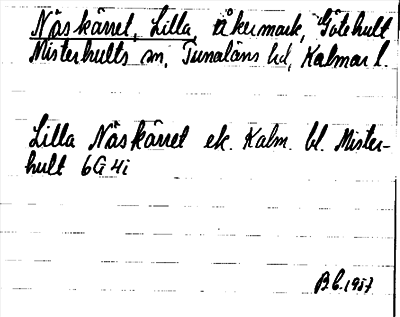 Näskärret, Lilla, åkermark, Götehult
Misterhults sn, Tunaläns hd, Kalmar l.
Lilla Näskärret ek. Kalm. bl. Mister-
hult 6G 4i
B.C. 1957